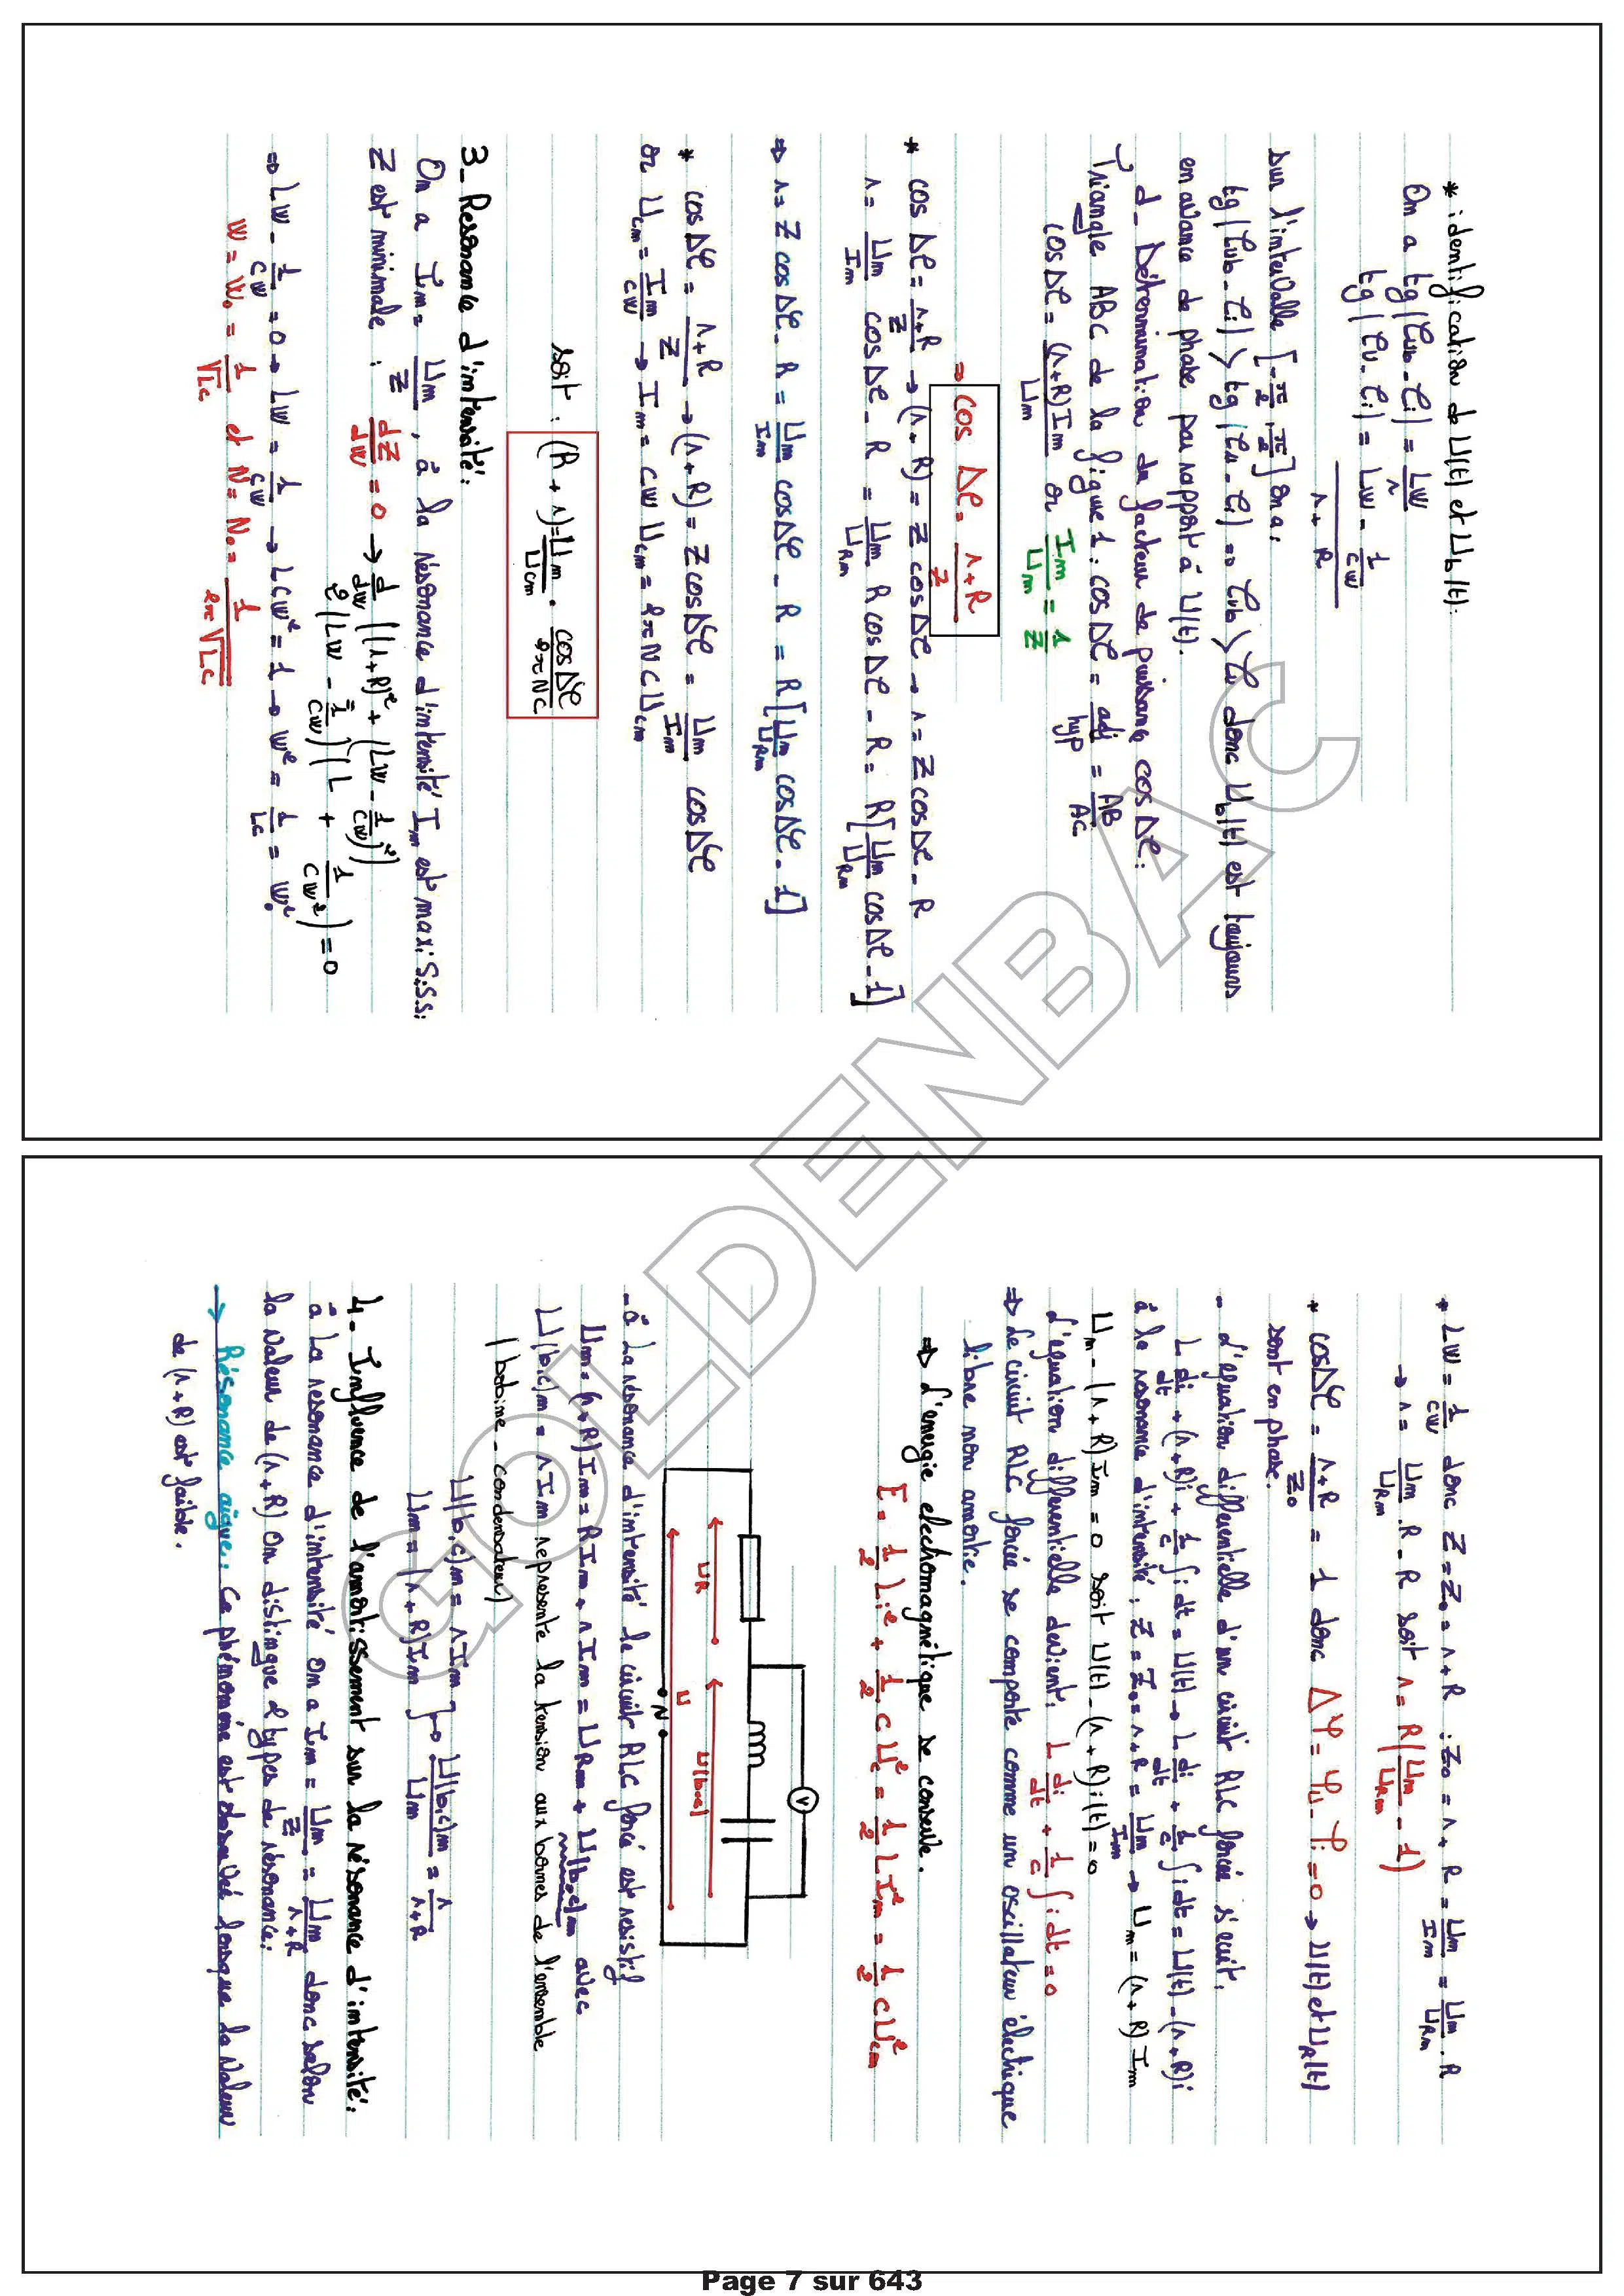 * identification de U(t) et Ub(t).
On a tg(φub - φi) = Lw/r
tg(φu - φi) = (Lw - 1/cw)/(r + R)
Sur l'intervalle [-π/2, π/2] on a :
tg(φub - φi) > tg(φu - φi) => φub > φu donc Ub(t) est toujours
en avance de phase par rapport à U(t).
d_ Détermination du facteur de puissance cosΔφ :
Triangle ABC de la figure 1 : cosΔφ = adj/hyp = AB/AC
cosΔφ = (r+R)Im/Um or Im/Um = 1/Z
=> cos Δφ = (r+R)/Z
* cosΔφ = (r+R)/Z → (r+R) = Z cosΔφ → r = Z cosΔφ - R
r = Um/Im cosΔφ - R = Um/URm R cosΔφ - R = R[Um/URm cosΔφ - 1]
=> r = Z cosΔφ - R = Um/Im cosΔφ - R = R[Um/URm cosΔφ - 1]
* cosΔφ = (r+R)/Z → (r+R) = Z cosΔφ = Um/Im cosΔφ
or Ucm = Im/cw → Im = cw Ucm = 2πN c Ucm
soit : (R + r) = Um/Ucm . cosΔφ/2πNc
3_ Resonance d'intensité :
On a Im = Um/Z, à la résonance d'intensité Im est max: S.S.S:
Z est minimale : dZ/dw = 0 → d/dw ((r+R)² + (Lw - 1/cw)²)
2(Lw - 1/cw)(L + 1/cw²) = 0
=> Lw - 1/cw = 0 → Lw = 1/cw → Lcw² = 1 → w² = 1/Lc = w₀²
w = w₀ = 1/√Lc et N = N₀ = 1/2π√Lc
* Lw = 1/cw donc Z = Z₀ = r + R : Z₀ = r + R = Um/Im = Um/URm . R
→ r = Um/URm . R - R soit r = R(Um/URm - 1)
* cosΔφ = (r+R)/Z₀ = 1 donc Δφ = φu - φi = 0 → U(t) et UR(t)
sont en phase.
- L'équation différentielle d'un circuit RLC forcée s'écrit.
L di/dt + (r+R)i + 1/c ∫i dt = U(t) → L di/dt + 1/c ∫i dt = U(t) - (r+R)i
à la resonance d'intensité : Z = Z₀ = r + R = Um/Im → Um = (r+R) Im
Um - (r+R) Im = 0 soit U(t) - (r+R)i(t) = 0
L'équation différentielle devient : L di/dt + 1/c ∫i dt = 0
=> Le circuit RLC forcée se comporte comme un oscillateur électrique
libre non amortie.
=> L'energie electromagnétique se conserve.
E = 1/2 Li² + 1/2 c Uc² = 1/2 L Im² = 1/2 c Ucm²
V
UR
U(b,c)
U
N
- à la résonance d'intensité le circuit RLC forcé est resistif
Um = (r+R)Im = RIm + rIm = URm + U(b,c)m avec
U(b,c)m = rIm represente la tension aux bornes de l'ensemble
(bobine - condensateur)
U(b,c)m = rIm
Um = (r+R)Im } → U(b,c)m/Um = r/(r+R)
4- Influence de l'amortissement sur la résonance d'intensité :
à la resonance d'intensité on a Im = Um/Z = Um/(r+R) donc selon
la valeur de (r+R) on distingue 2 types de résonance :
→ Résonance aigue : Ce phénomène est observé lorsque la valeur
de (r+R) est faible.
GOLDENBAC
Page 7 sur 643